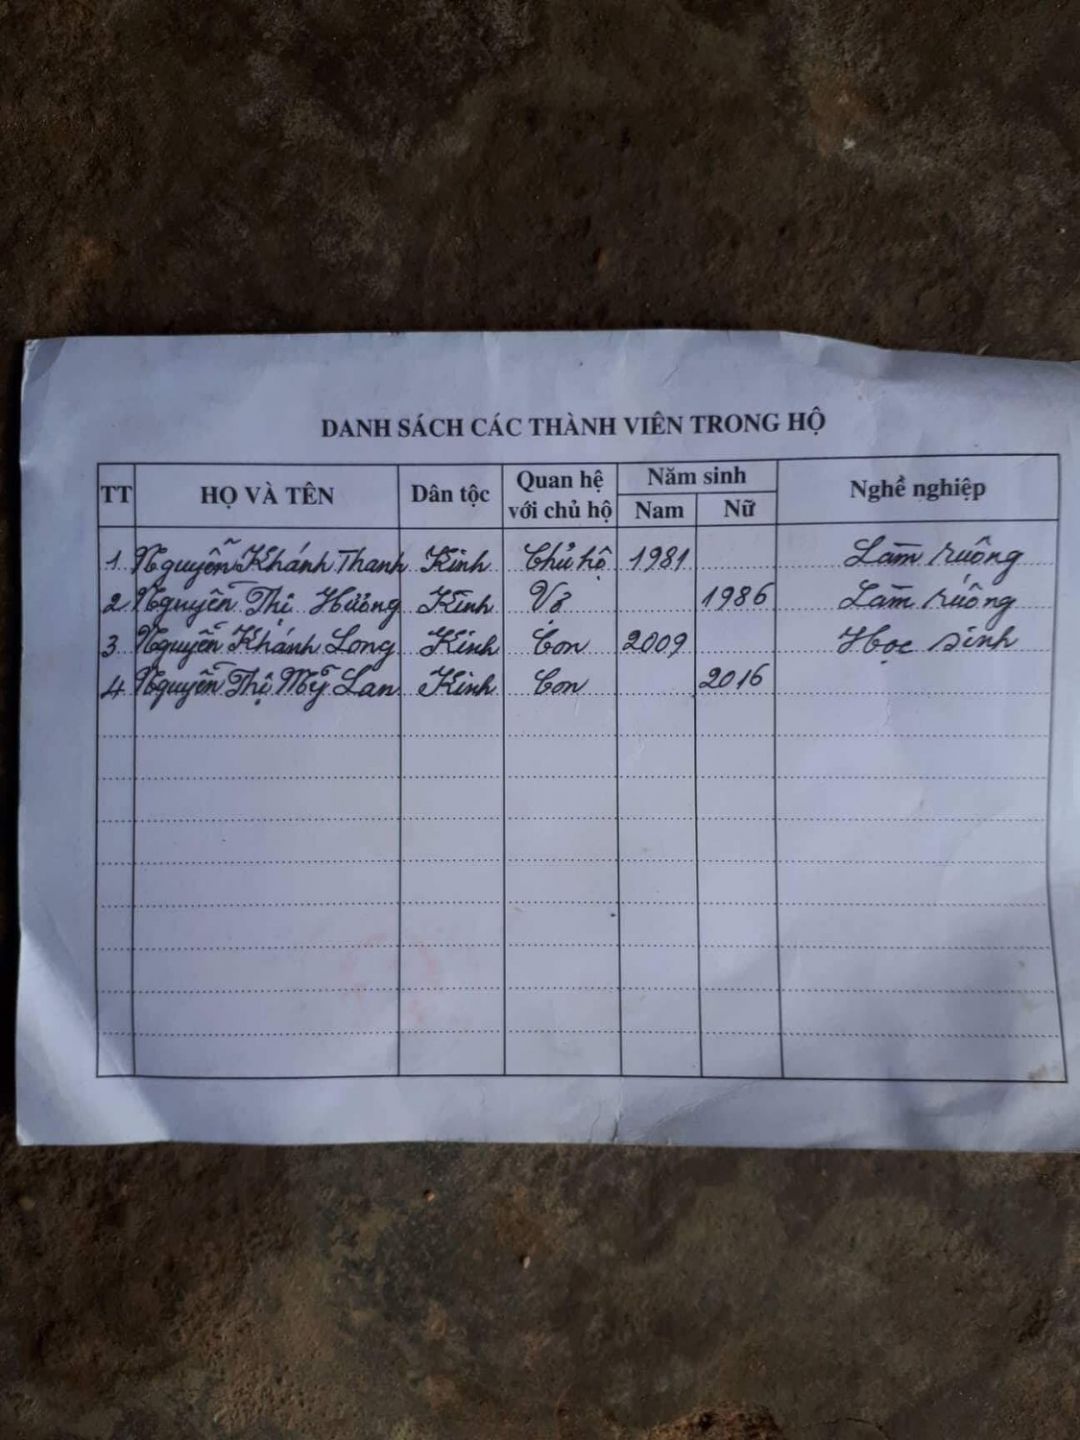 DANH SÁCH CÁC THÀNH VIÊN TRONG HỘ
TT HỌ VÀ TÊN Dân tộc Quan hệ với chủ hộ Năm sinh Nam Nữ Nghề nghiệp
1 Nguyễn Khánh Thanh Kinh Chủ hộ 1981 Làm ruộng
2 Nguyễn Thị Hường Kinh Vợ 1986 Làm ruộng
3 Nguyễn Khánh Long Kinh Con 2009 Học sinh
4 Nguyễn Thị Mỹ Lan Kinh Con 2016